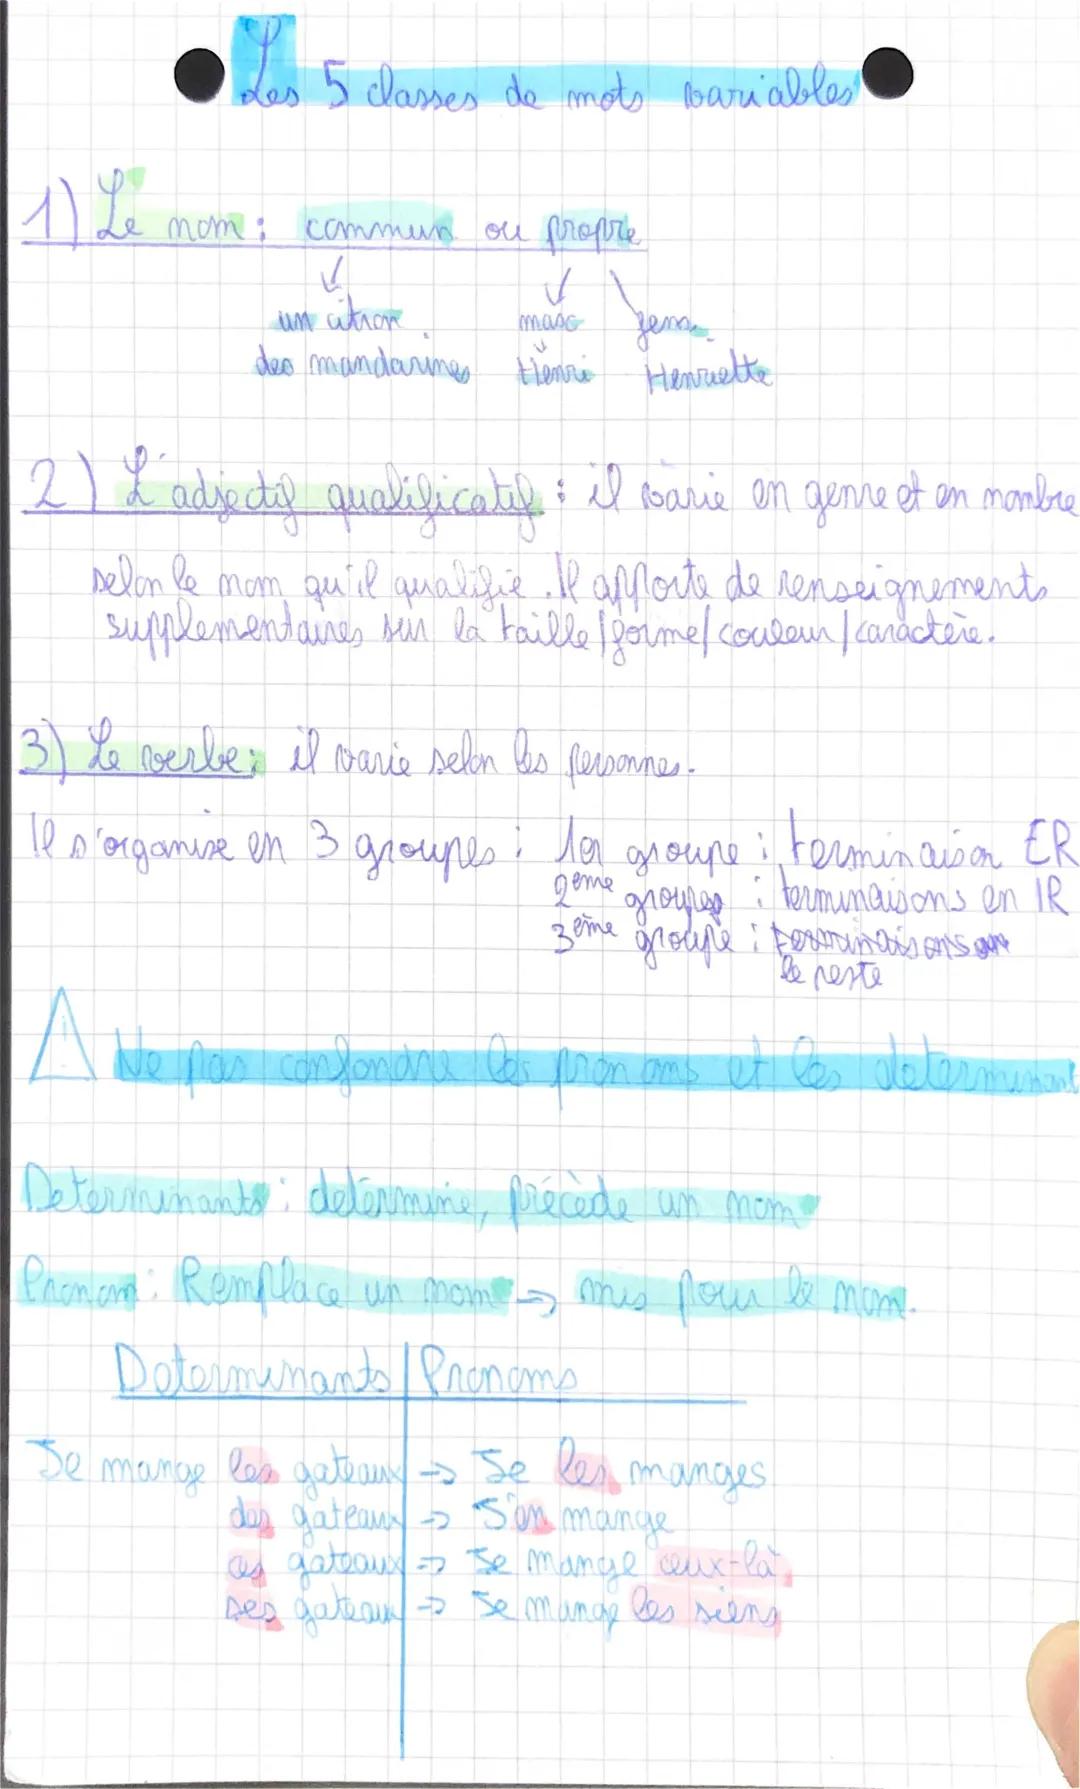 Les 5 classes de mots variables
1) Le nom : commun ou propre
un citron masc fem.
des mandarines Henri Henriette
2) L'adjectif qualificatif : il varie en genre et en nombre
selon le nom qu'il qualifie. Il apporte de renseignements
supplementaires sur la taille/forme/couleur/caractère.
3) Le verbe : il varie selon les personnes.
Il s'organise en 3 groupes : 1er groupe : terminaison ER
2eme groupes : terminaisons en IR
3eme groupe : terminaisons
le reste
! Ne pas confondre les pronoms et les determinant
Determinants : determine, précède un nom
Pronom : Remplace un nom → mis pour le nom.
Determinants | Pronoms
Je mange les gateaux → Je les manges
des gateaux → J'en mange
ces gateaux → Je mange ceux-là
ses gateaux → Je mange les siens